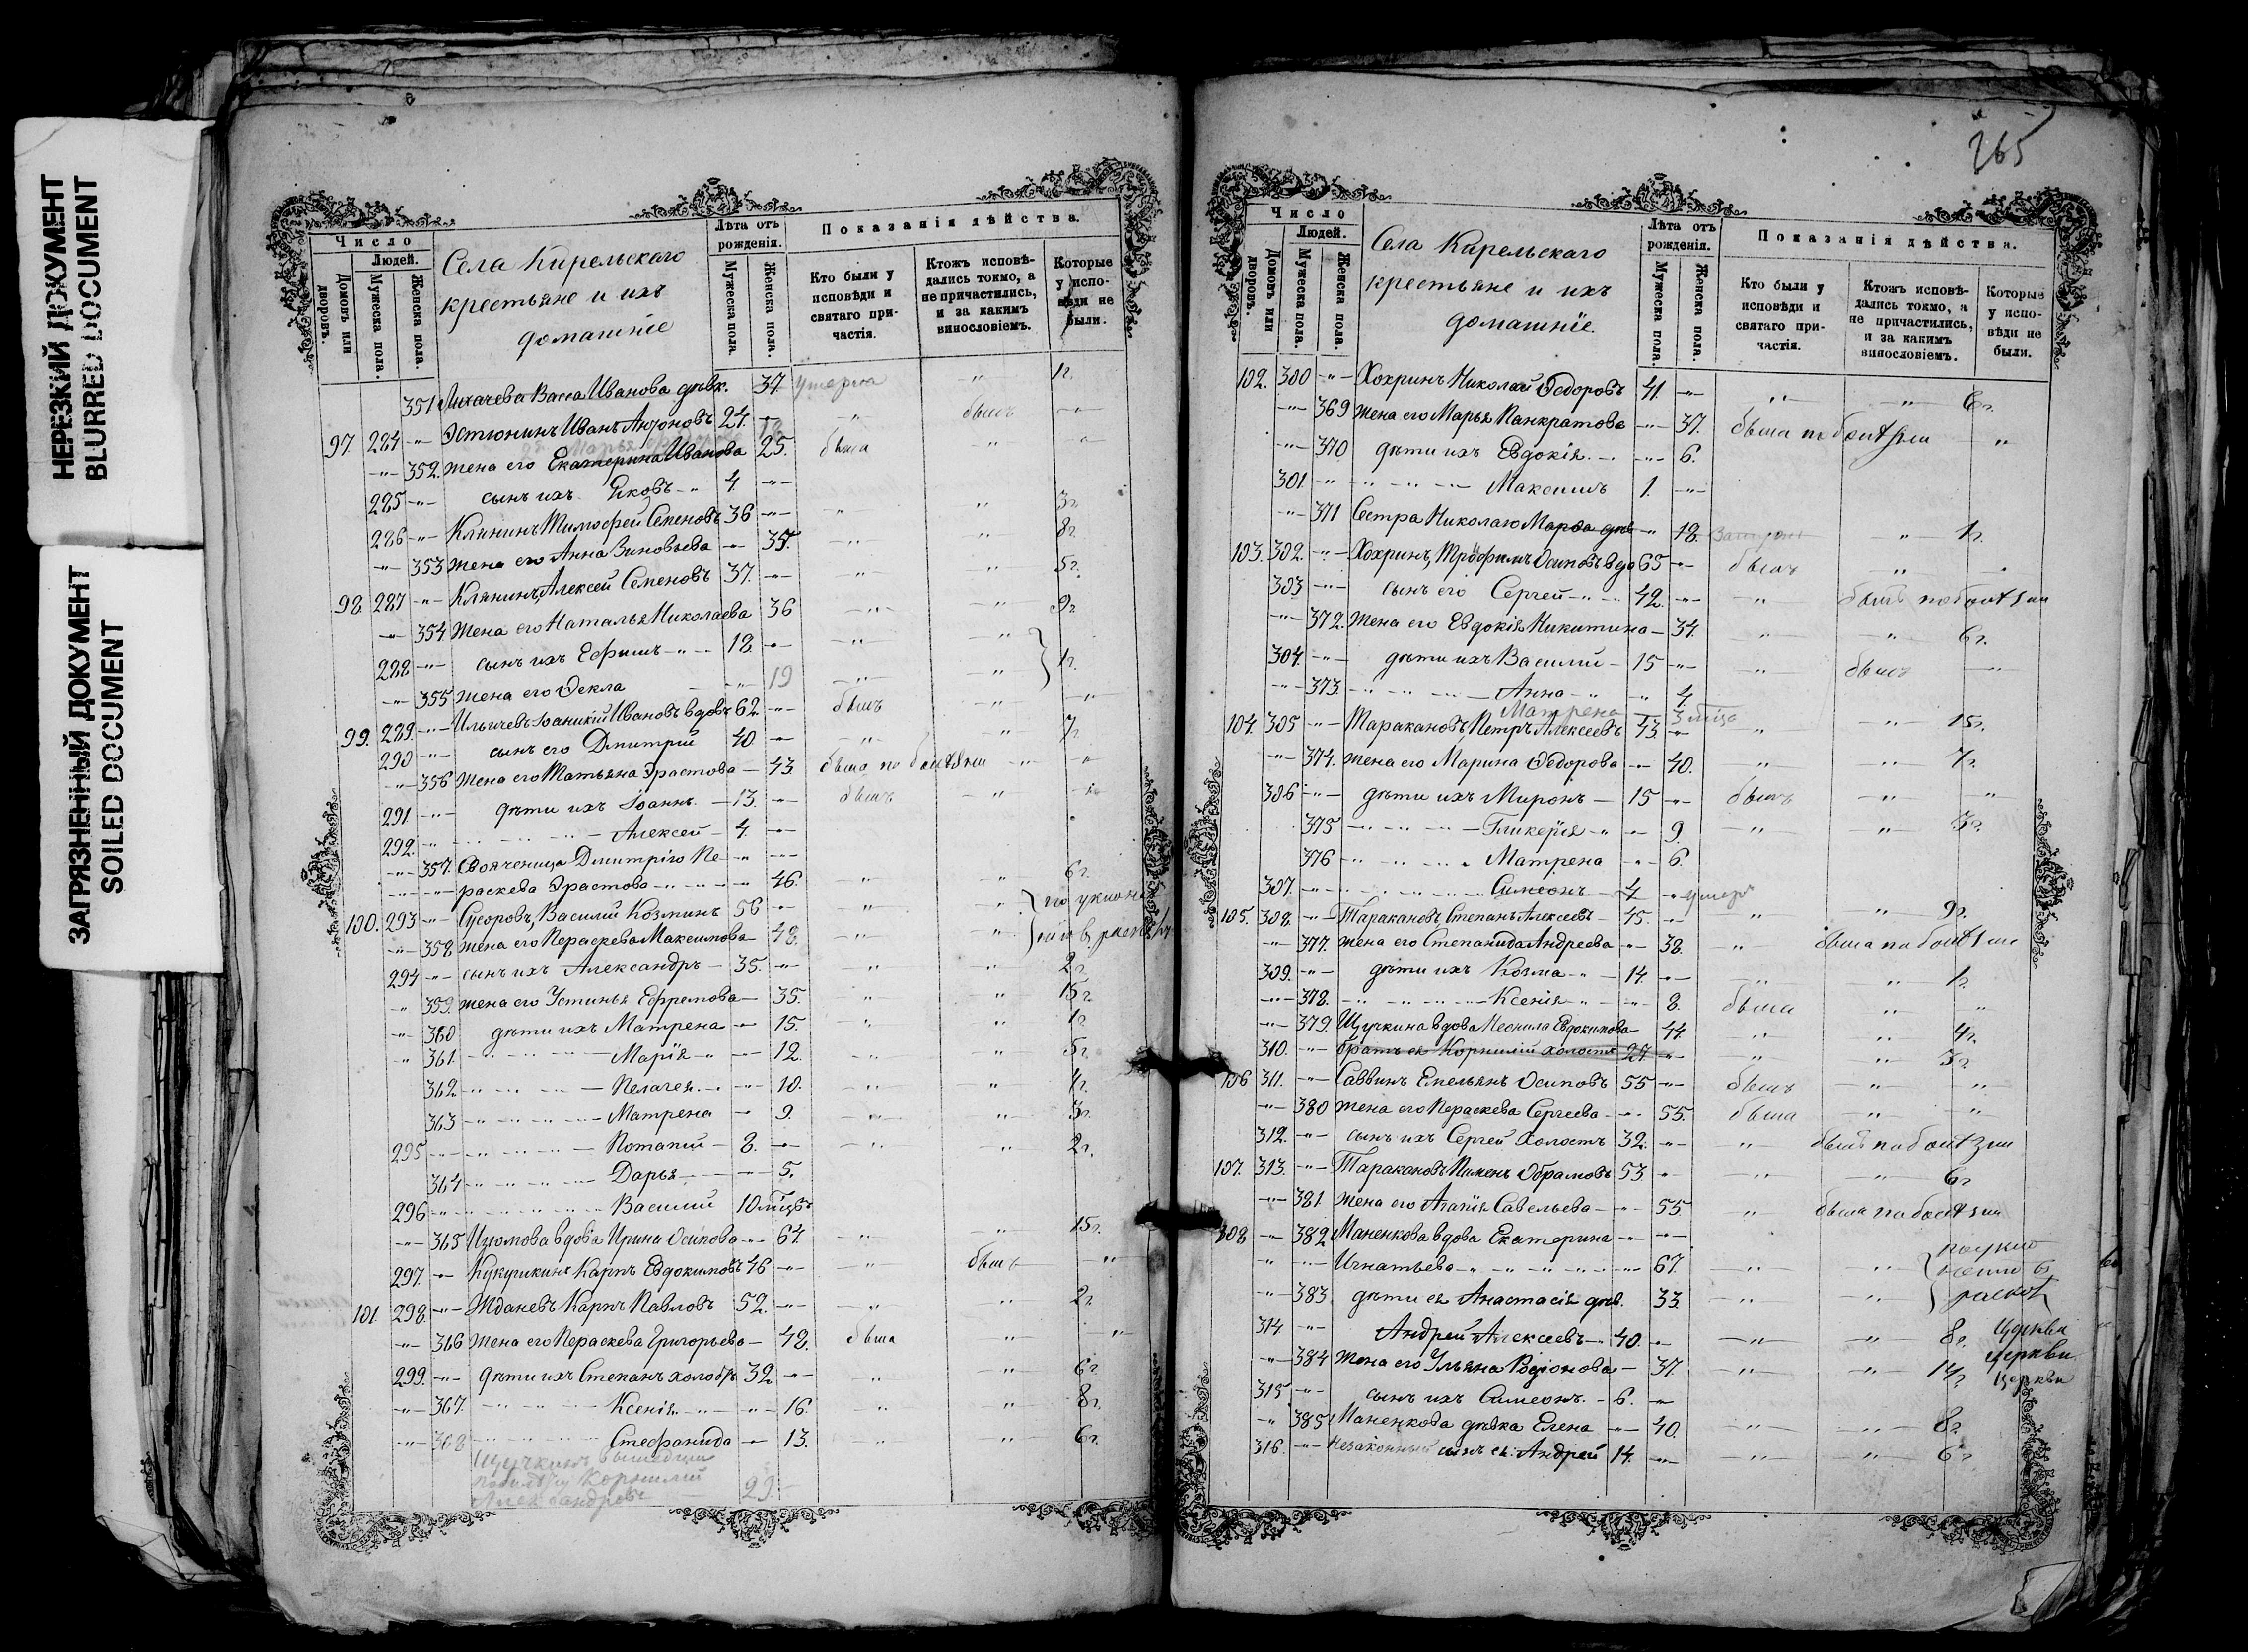 НЕРЕЗКИЙ ДОКУМЕНТ
BLURRED DOCUMENT
ЗАГРЯЗНЕННЫЙ ДОКУМЕНТ
SOILED DOCUMENT
Число
Людей.
Домовъ или дворовъ.
Мужеска пола.
Женска пола.
Села Кирельскаго
крестьяне и ихъ
домашніе
Лѣта отъ рожденія.
Мужеска пола.
Женска пола.
Показанія дѣйства.
Кто были у исповѣди и святаго причастія.
Ктожъ исповѣдались токмо, а не причастились, и за какимъ винословіемъ.
Которые у исповѣди не были.
351 Лихачева Васса Иванова дѣвк. 37 умерла " 1г.
97. 284 " Эстюнинъ Иванъ Антоновъ 24. " " былъ "
" 352. жена его Екатерина Иванова 25. была " "
285 " сынъ ихъ Яковъ " 4. "
286 " Клянинъ Тимофей Семеновъ 36 " " " 3г.
" 353 жена его Анна Зиновьева " 35. " " 8г.
98. 287 " Клянинъ Алексей Семеновъ 37. " " " 5г.
" 354. Жена его Наталья Николаева 36 " " 9г.
288 " сынъ ихъ Ефимъ " 18. " " "
" 355 жена его Фекла " 19 " " 1г.
99. 289. " Ильичевъ Іоанникій Ивановъ вдовъ 62. " былъ " "
290 " сынъ его Дмитрій 40. " " " 7г.
" 356 Жена его Татьяна Эрастова 43. была по болѣзни " "
291. " дѣти ихъ Іоаннъ. 13. " былъ " "
292. " Алексей 4. "
" 357. Свояченица Дмитрію Пе-
раскева Эрастова " 46. " " 6г.
100. 293 " Суворовъ, Василій Козминъ 56 " " "
" 358. жена его Пераскева Максимова 48. " "
294 " сынъ ихъ Александръ 35. " " " 2г.
" 359. жена его Устинья Ефремова 35. " " 15г.
" 360 дѣти ихъ Матрена 15. " " 1г.
" 361. Марія 12. " " 5г.
362. Пелагея 10. " " 4г.
363 Матрена 9. " " 3г.
295 Потапій 8. " " " 2г.
364 Дарья 5.
296 Василій 10 мѣсцъ
" 365 вдова Ирина Осипова 64. " " 15г.
297. " Кукушкинъ Карпъ Евдокимовъ 46 " " былъ "
101. 298. " Жданевъ Карпъ Павловъ 52. " " " 2г.
" 366 Жена его Пераскева Григорьева 48. была " "
299. " дѣти ихъ Степанъ холостъ 32. " " " 6г.
" 367. Ксенія 16. " " 8г.
" 368 Стефанида 13. " " 6г.
Щучкинъ
Корнилій
Александровъ 29.
265
Число
Людей.
Домовъ или дворовъ.
Мужеска пола.
Женска пола.
Села Кирельскаго
крестьяне и ихъ
домашніе.
Лѣта отъ рожденія.
Мужеска пола.
Женска пола.
Показанія дѣйства.
Кто были у исповѣди и святаго причастія.
Ктожъ исповѣдались токмо, а не причастились, и за какимъ винословіемъ.
Которые у исповѣди не были.
102. 300 " Хохринъ Николай Ѳедоровъ 41. " " " 6г.
" 369 жена его Марья Панкратова " 37. была по болѣзни "
" 370 дѣти ихъ Евдокія " 6.
301. " Максимъ 1. "
" 371 Сестра Николаю Марѳа дѣв " 18. " 1г.
103. 302. " Хохринъ, Трофимъ Осиповъ вдо 65 " былъ " "
303 " сынъ его Сергей 42. " " былъ по болѣзни
" 372. Жена его Евдокія Никитина 34. " " 6г.
304. " дѣти ихъ Василій 15 " " былъ "
" 373. Анна " 4.
Матрена 3 мѣсца
104. 305 " Таракановъ, Петръ Алексеевъ 43 " " " 15г.
" 374. жена его Марина Ѳедорова " 40. " " 7г.
306 " дѣти ихъ Миронъ 15 " былъ " "
375 Гликерія " 9. " " 3г.
376 Матрена " 6.
307. " Симеонъ 4 " умеръ
105. 308. " Таракановъ Степанъ Алексеевъ 45. " " " 9г.
" 377. жена его Степанида Андреева " 38. " была по болѣзни
309. " дѣти ихъ Козма 14. " " " 1г.
" 378. Ксенія " 8. была " "
" 379. Щучкина вдова Неонила Евдокимова 44. " " 4г.
310. " братъ ея Корнилій холостъ 27. " " " 3г.
106 311. " Саввинъ Емельянъ Осиповъ 55 " былъ " "
" 380 жена его Пераскева Сергеева " 55. была " "
312. " сынъ ихъ Сергей холостъ 32. " " былъ по болѣзни
107. 313. " Таракановъ Пименъ Абрамовъ 53. " " " 6г.
" 381 жена его Агапія Савельева " 55. " была по болѣзни
108 " 382 Маненкова вдова Екатерина " "
Игнатьева " 67. " "
" 383. дѣти ея Анастасія дѣв. 33. " "
314. " Андрей Алексеевъ 40. " " " 8г. Церкви
" 384 Жена его Ульяна Родіонова 37. " " 14г. церкви
315 " сынъ ихъ Симеонъ. 6. " Церкви
" 385 Маненкова дѣвка Елена " 40. " " 8г.
316. " Незаконный сынъ ея: Андрей 14. " " " 6г.